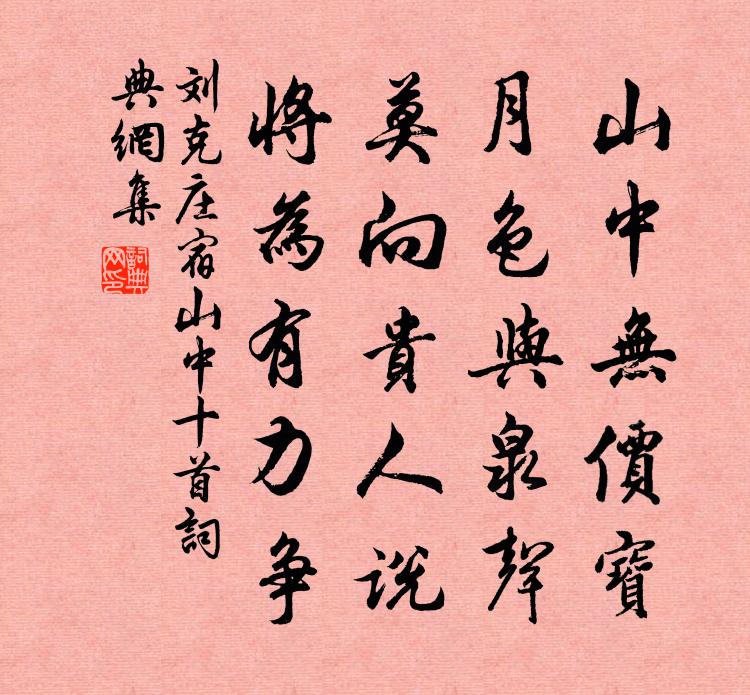 山中無價寶
月色與泉聲
莫向貴人說
將為有力争
刘克庄宿山中十首詞
典網集
詞典网印